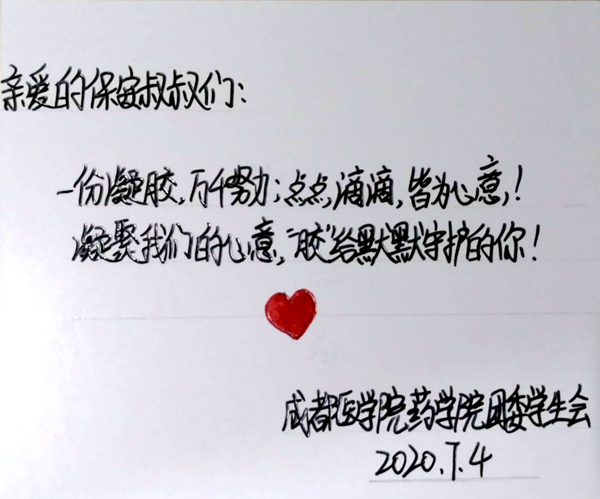 亲爱的保安叔叔们：
一份凝胶，万千努力；点点滴滴，皆为心意，！
凝聚我们的心意，“胶”给默默守护的你！
成都医学院药学院团委学生会
2020.7.4